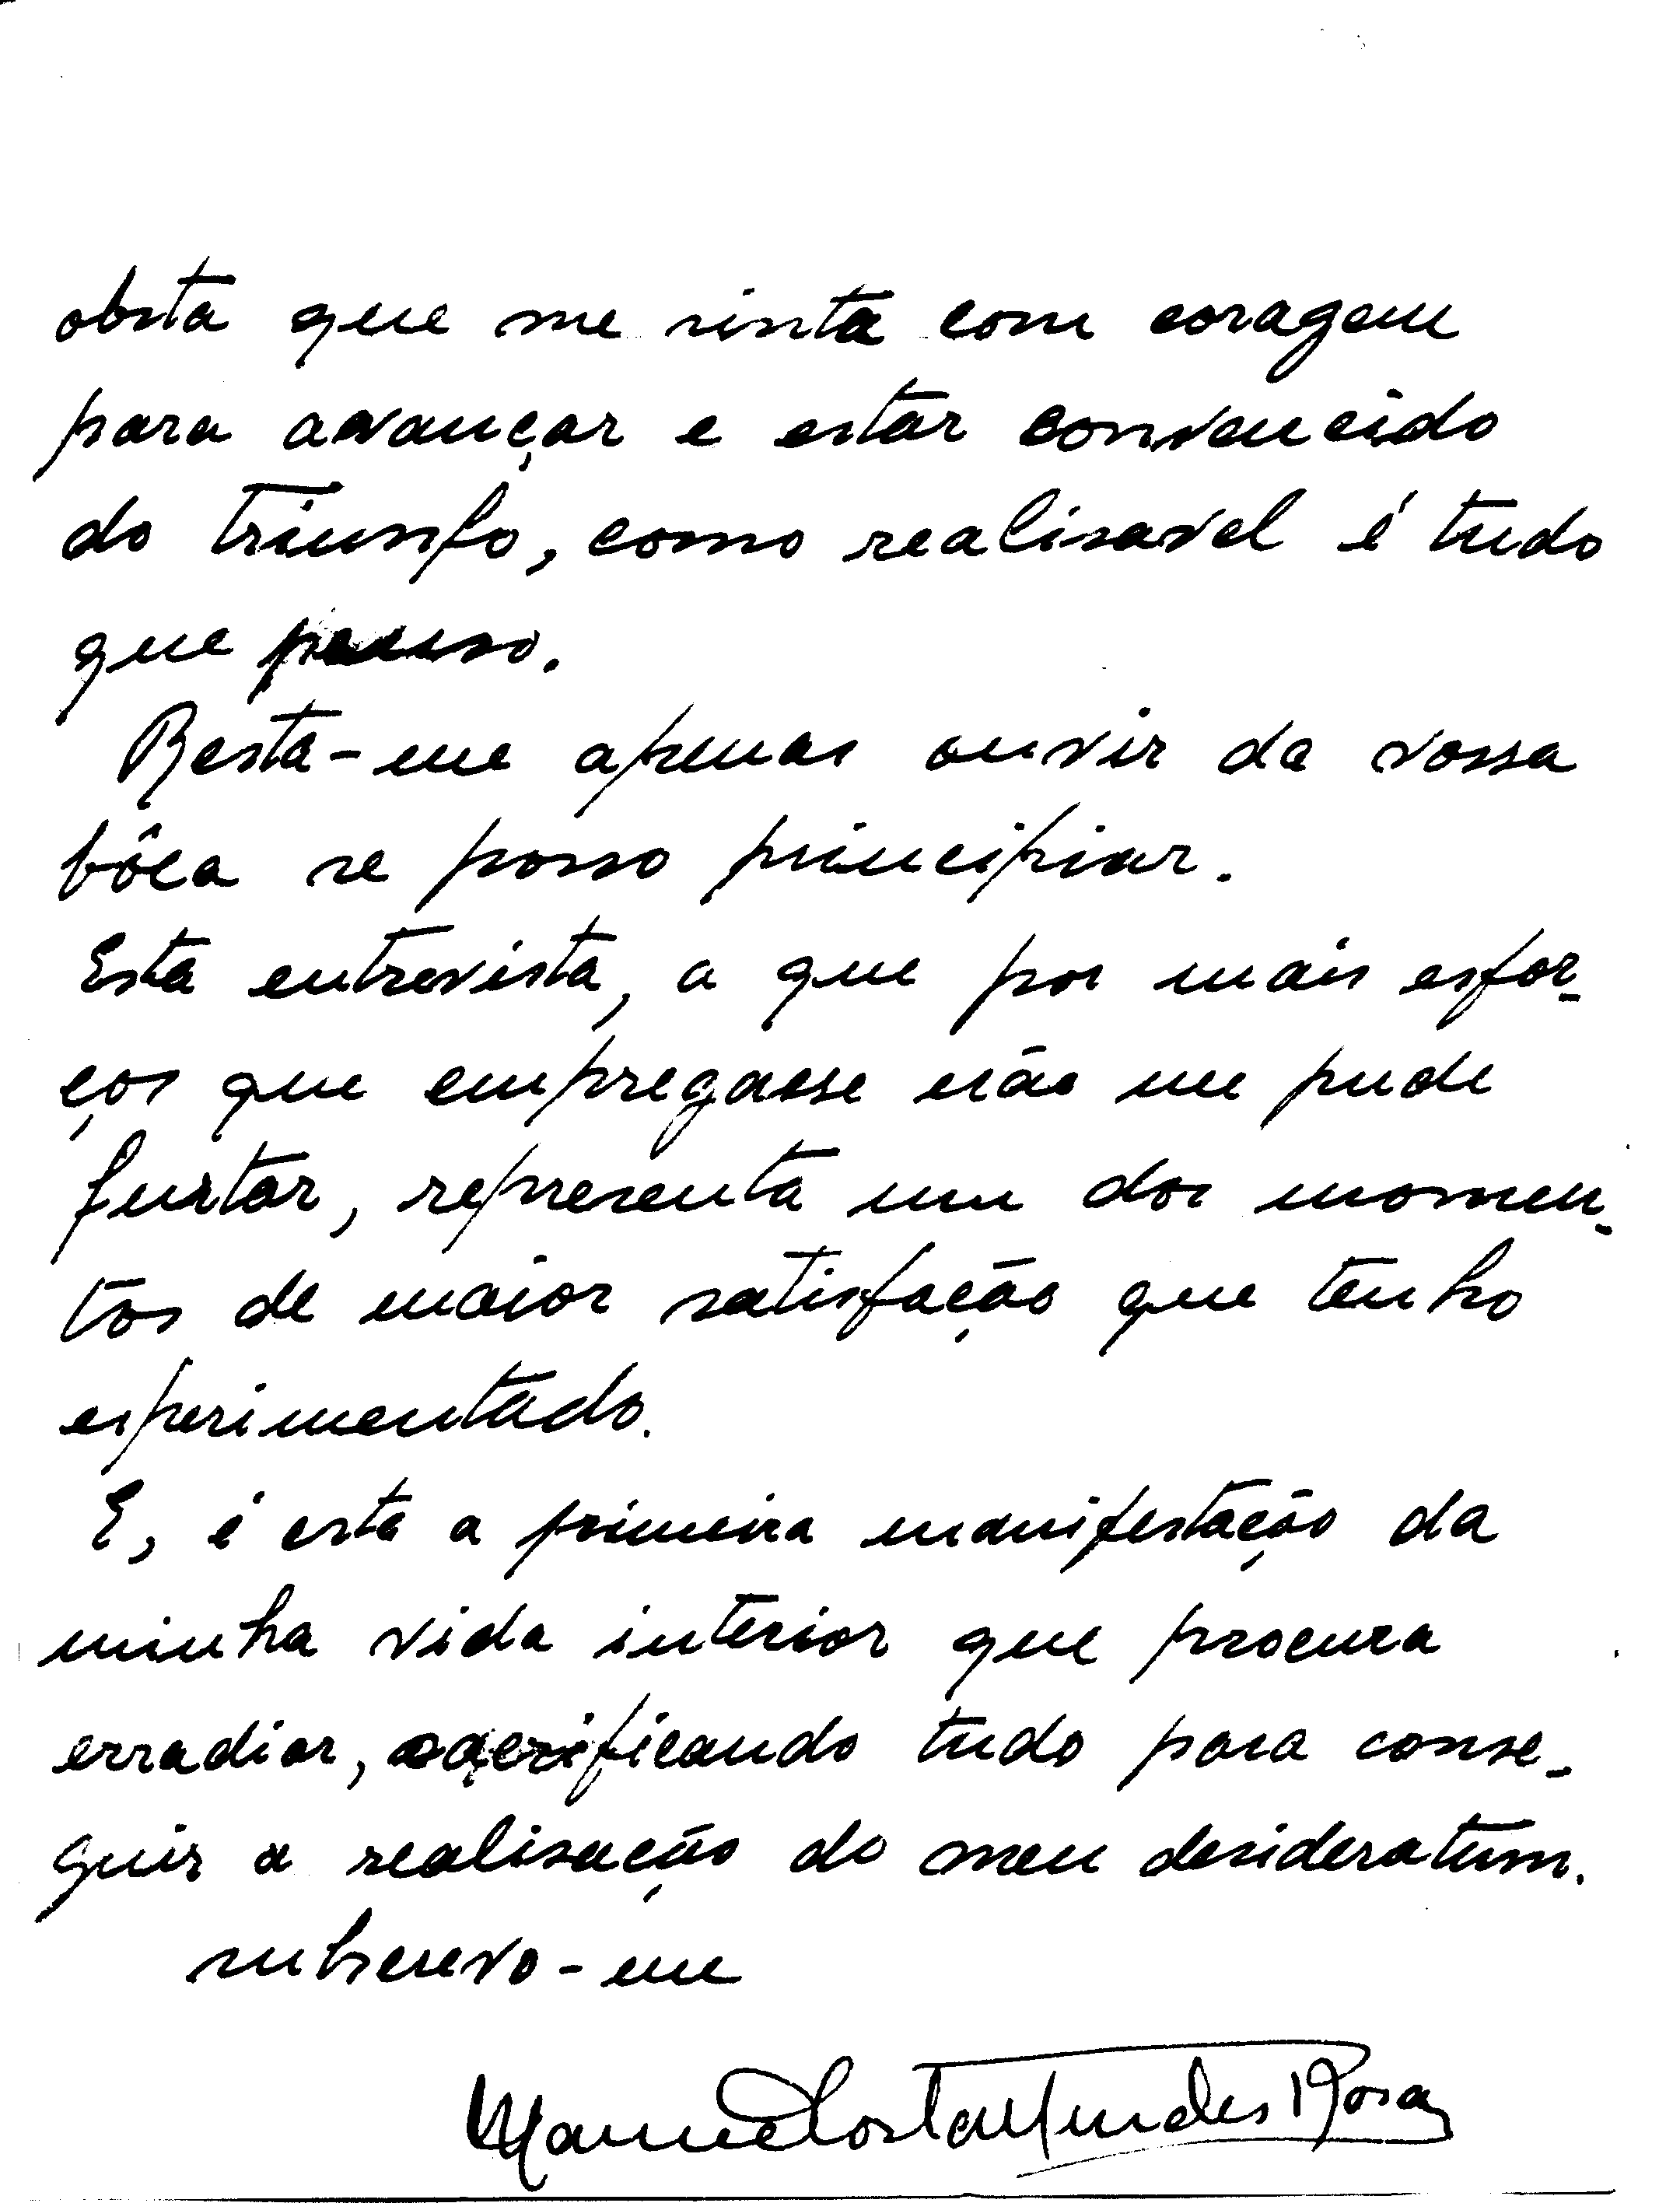 obsta que me sinta com coragem
para avançar e estar convencido
do triunfo, como realisavel é tudo
que penso.
Resta-me apenas ouvir da vossa
bôca se posso principiar.
Esta entrevista, a que por mais esfor-
ços que empregasse não me pude
furtar, representa um dos momen-
tos de maior satisfação que tenho
esperimentado.
E, é esta a primeira manifestação da
minha vida interior que procura
erradiar, sacrificando tudo para conse-
guir a realisação do meu desideratum.
subscrevo-me
Manuel Costa Mendes Rosa